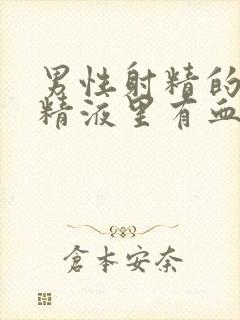 男性射精的
精液里有血
倉本安奈